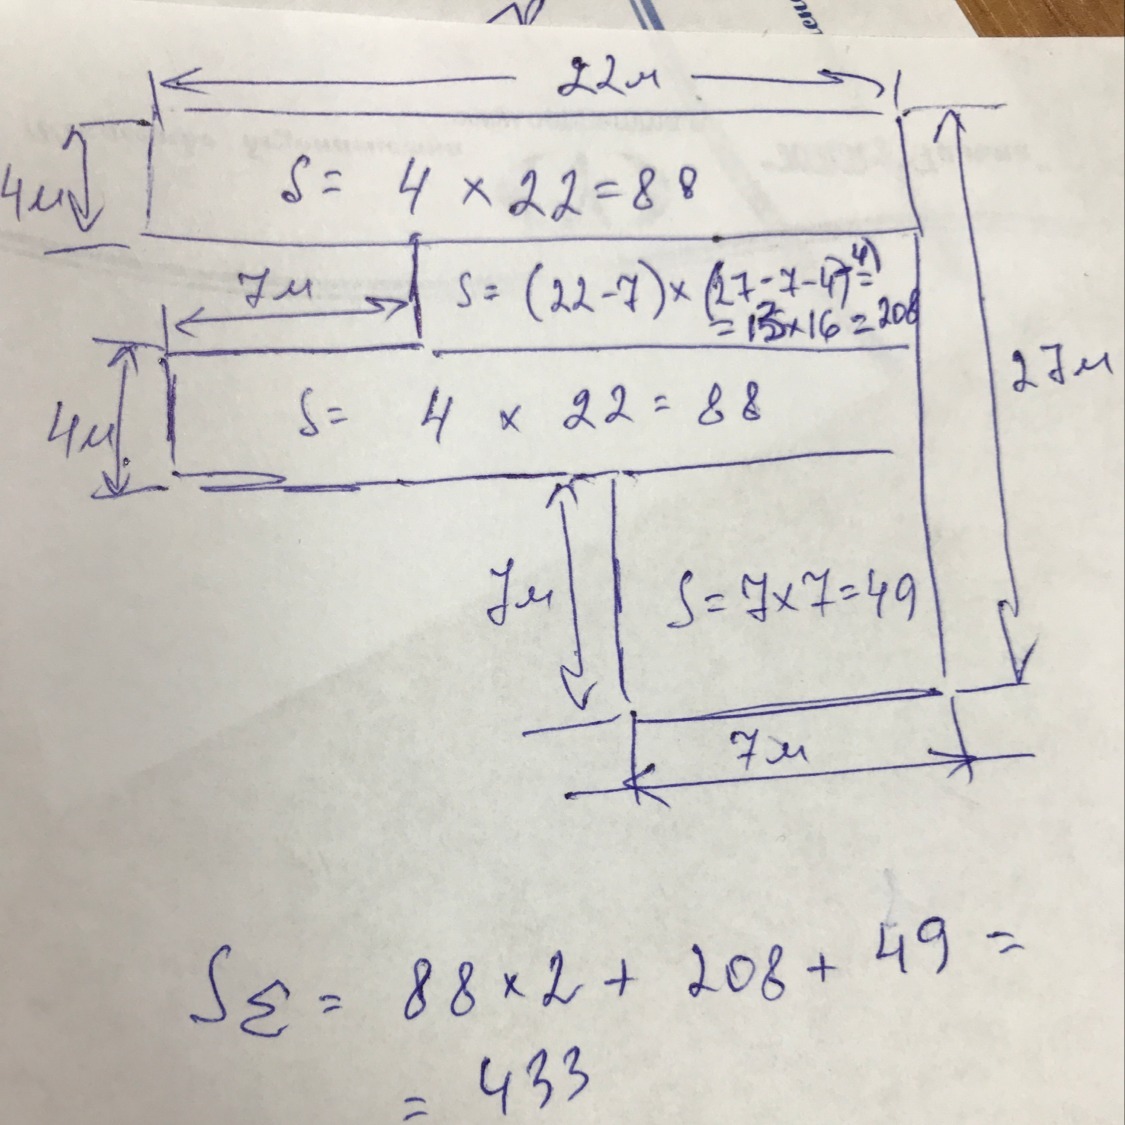 22м
4м
S = 4 × 22 = 88
7м
S = (22-7) × (27-7-4-4) =
= 15×16 = 208
4м
S = 4 × 22 = 88
27м
7м
S = 7×7=49
7м
S Σ = 88×2 + 208 + 49 =
= 433